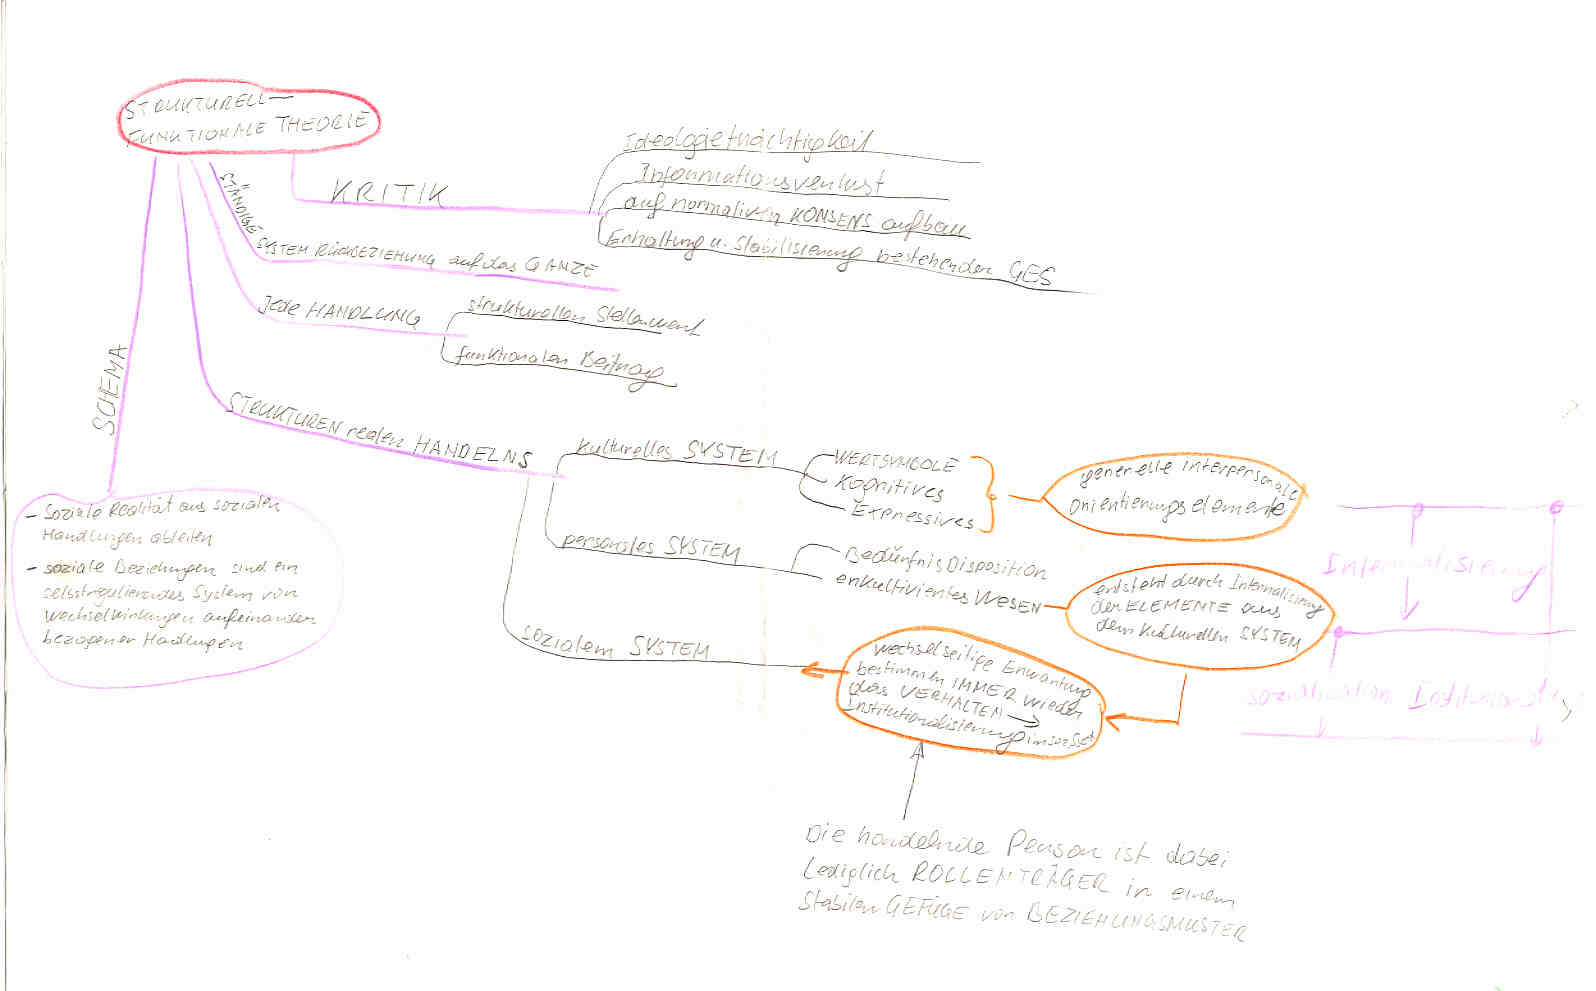 STRUKTURELL-
FUNKTIONALE THEORIE
KRITIK
Ideologieträchtigkeit
Informationsverlust
auf normativen KONSENS aufbau
Erhaltung u. Stabilisierung bestehenden GES
STÄNDIGE
SYSTEM RÜCKBEZIEHUNG auf das GANZE
Jede HANDLUNG
strukturellen Stellenwert
funktionalen Beitrag
SCHEMA
- Soziale Realität aus sozialen
Handlungen ableiten
- soziale Beziehungen sind ein
selbstregulierendes System von
wechselwirkungen aufeinander
bezogener Handlungen
STRUKTUREN realen HANDELNS
kulturelles SYSTEM
WERTSYMBOLE
Kognitives
Expressives
generelle interpersonale
Orientierungselemente
personales SYSTEM
Bedürfnis Disposition
enkultiviertes WESEN
entsteht durch Internalisierung
der ELEMENTE aus
dem kulturellen SYSTEM
sozialem SYSTEM
wechselseitige Erwartung
bestimmen IMMER wieder
das VERHALTEN →
Institutionalisierung
Die handelnde Person ist dabei
Lediglich ROLLENTRÄGER in einem
Stabilen GEFÜGE von BEZIEHUNGSMUSTER
Internalisierung
Sozialisation